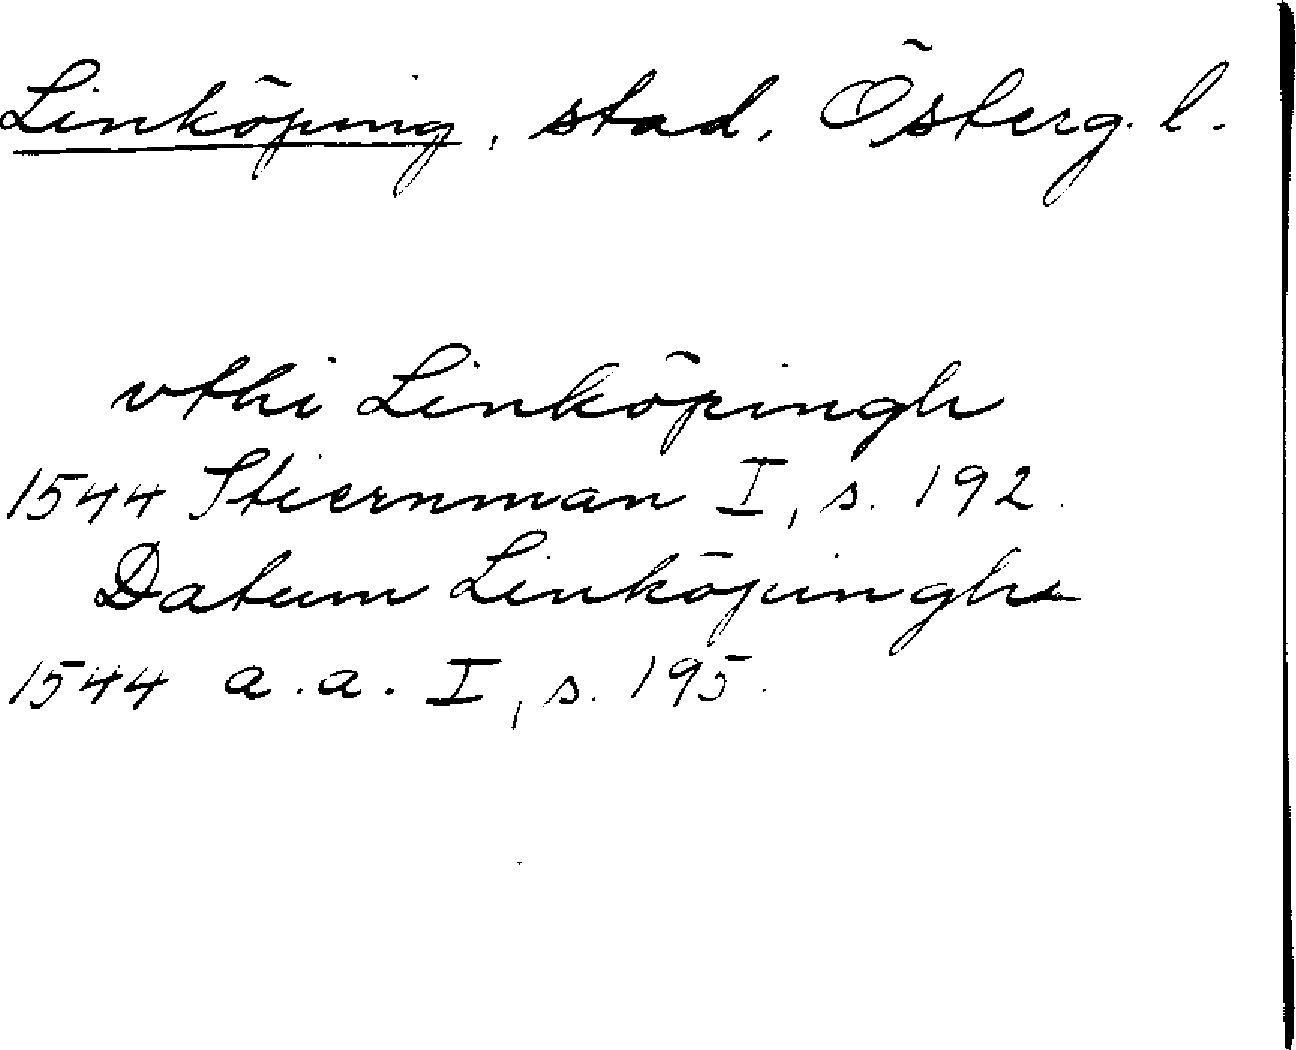 Linköping, stad, Österg. l.
vthi Linköpingh
1544 Stiernman I, s. 192.
Datum Linköpingh
1544 a.a. I, s. 195.